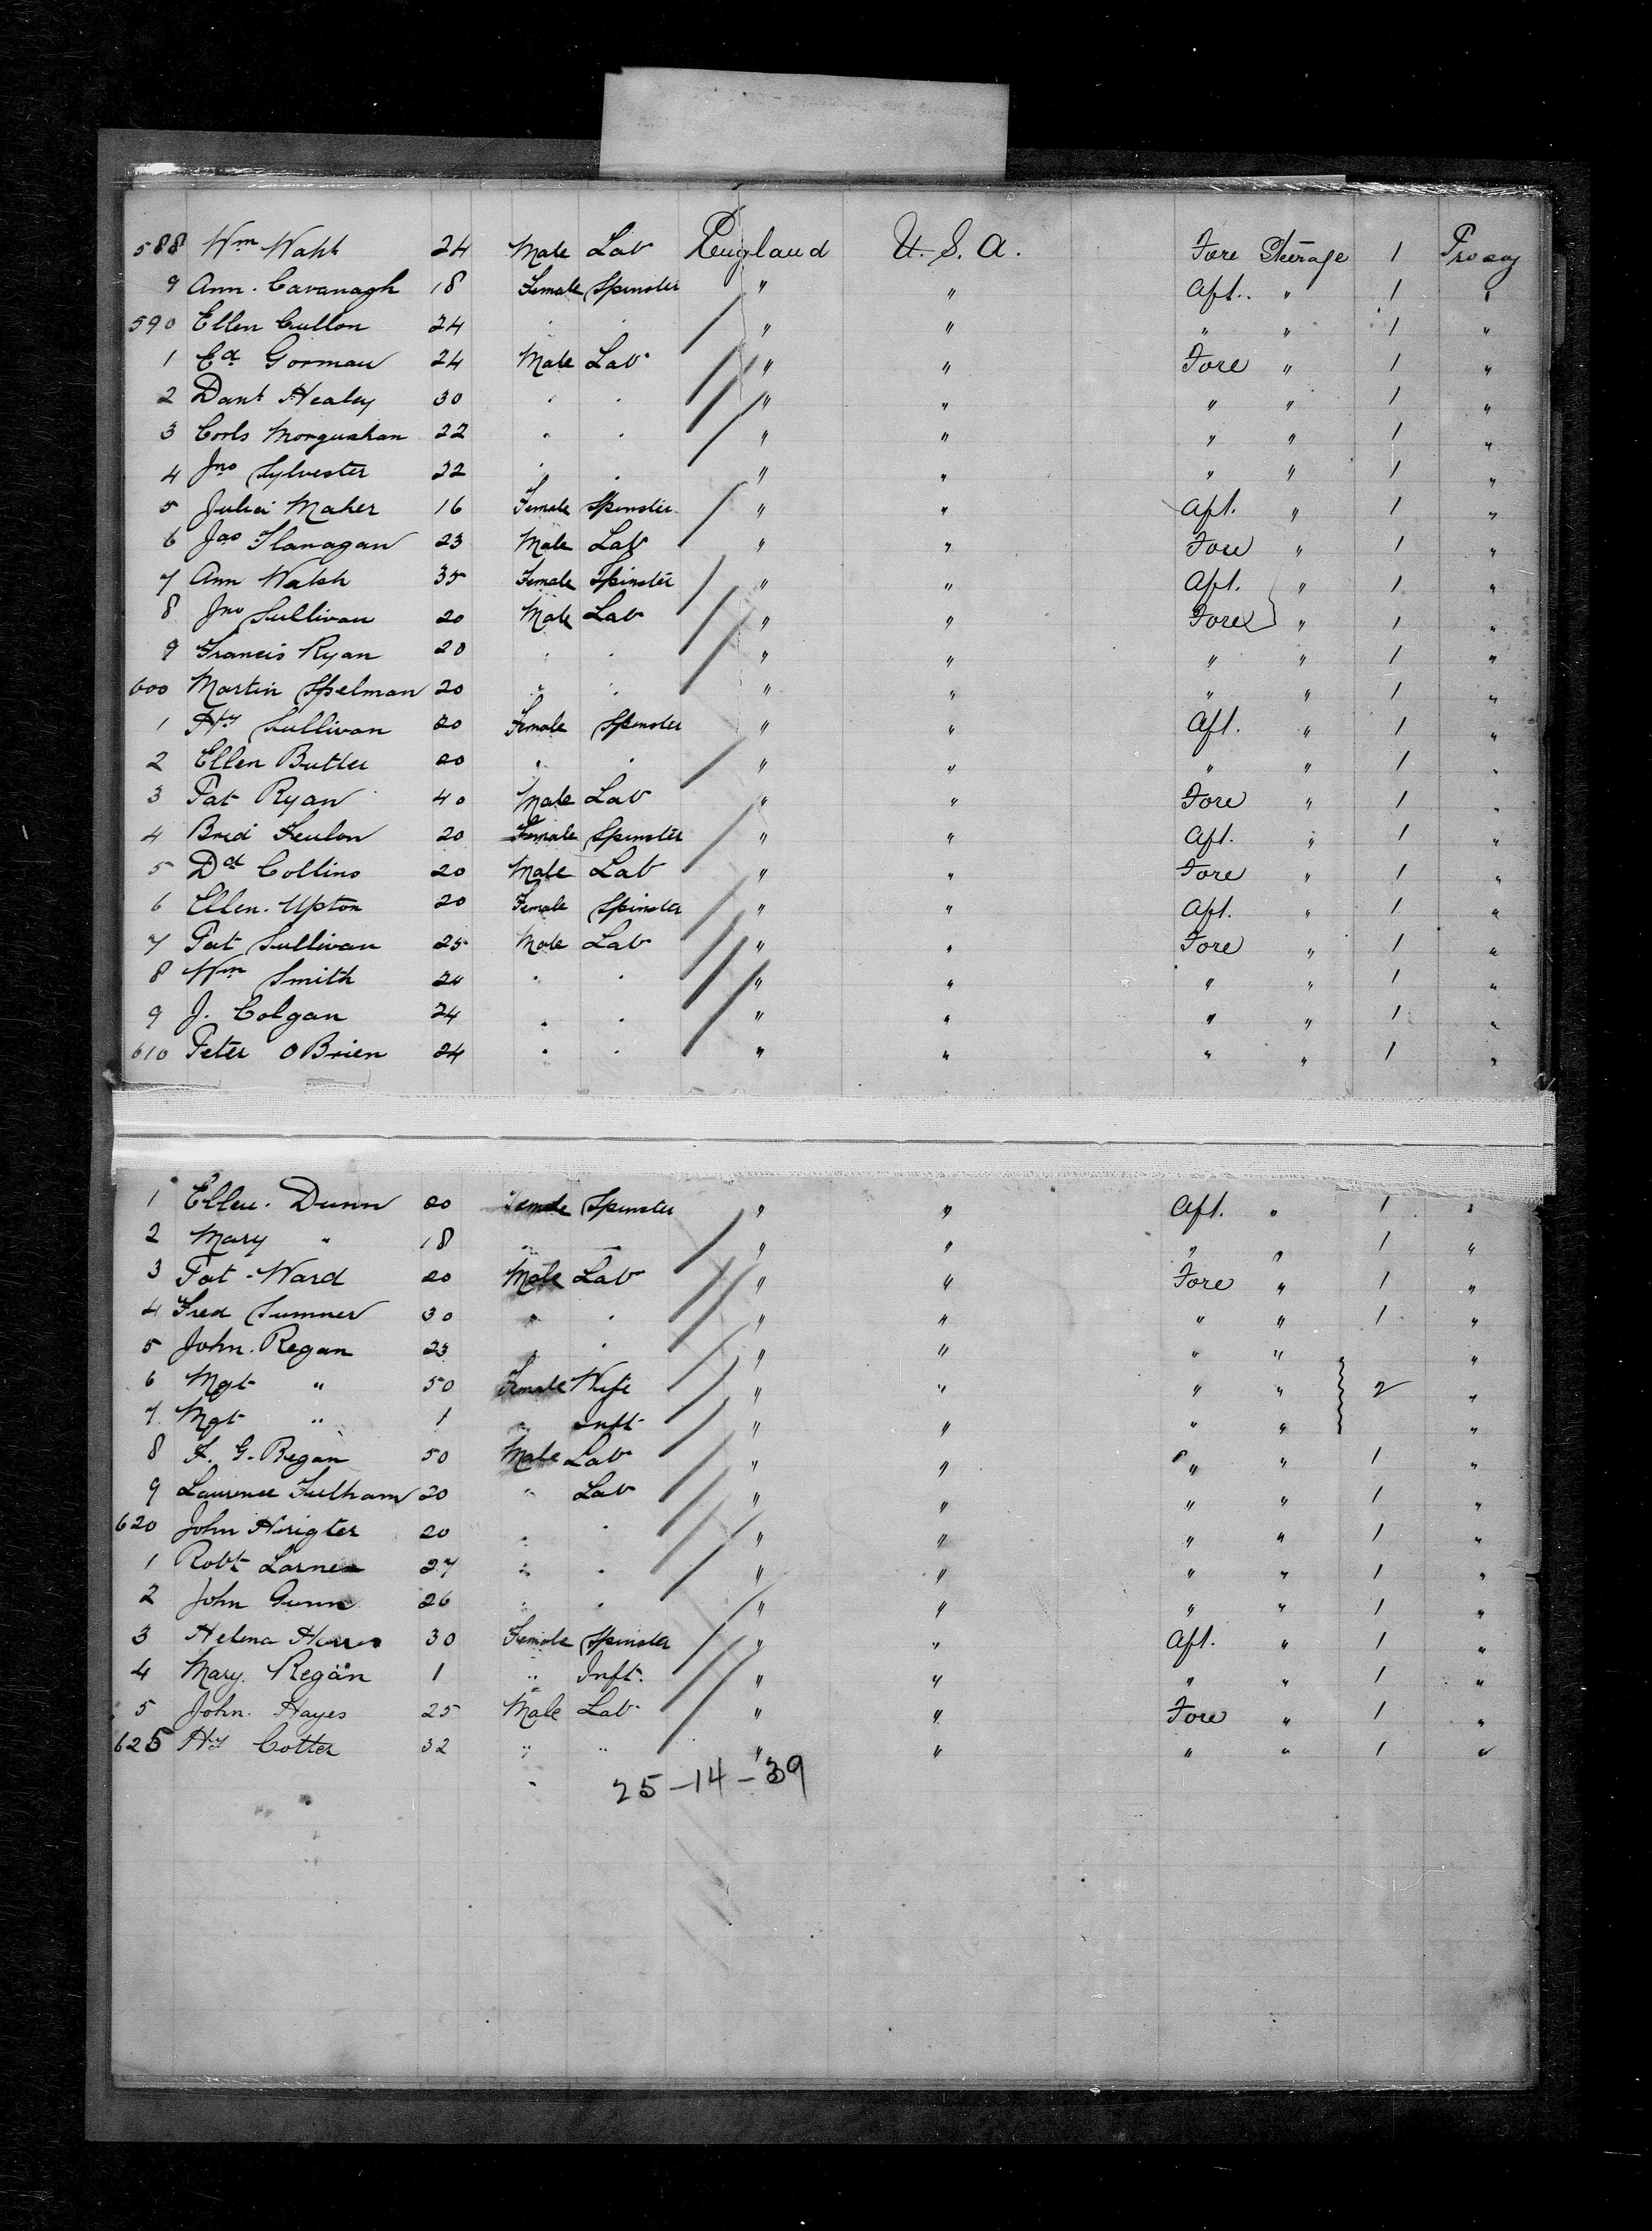 588 Wm Walsh 24 Male Lab England U.S.A. Fore Steerage 1 Prosag
9 Ann. Cavanagh 18 Female Spinster " " Aft. " 1 "
590 Ellen Cullon 24 " " " " " " 1 "
1 Ed Gorman 24 Male Lab " " Fore " 1 "
2 Danl Healey 30 " " " " " " 1 "
3 22 " " " " " " 1 "
4 Jno Sylvester 32 " " " " " " 1 "
5 Julia Maher 16 Female Spinster " " Aft. " 1 "
6 Jas Flanagan 23 Male Lab " " Fore " 1 "
7 Ann Walsh 35 Female Spinster " " Aft. " 1 "
8 Jno Sullivan 20 Male Lab " " Fore " 1 "
9 Francis Ryan 20 " " " " " " 1 "
600 Martin Spelman 20 " " " " " " 1 "
1 Hy Sullivan 20 Female Spinster " " Aft. " 1 "
2 Ellen Butler 20 " " " " " " 1 "
3 Pat Ryan 40 Male Lab " " Fore " 1 "
4 Brid 20 Female Spinster " " Aft. " 1 "
5 Dd Collins 20 Male Lab " " Fore " 1 "
6 Ellen. Upton 20 Female Spinster " " Aft. " 1 "
7 Pat Sullivan 25 Male Lab " " Fore " 1 "
8 Wm Smith 24 " " " " " " 1 "
9 J. Colgan 24 " " " " " " 1 "
610 Peter O Brien 24 " " " " " " 1 "
1 Ellen. Dunn 20 Female Spinster " " Aft. " 1 "
2 Mary " 18 " " " " " " 1 "
3 Pat. Ward 20 Male Lab " " Fore " 1 "
4 Fred Sumner 30 " " " " " " 1 "
5 John. Regan 23 " " " " " " "
6 Mgt " 50 Female Wife " " " " 2 "
7 Mgt " 1 " Inft " " " " "
8 F. G. Regan 50 Male Lab " " " " 1 "
9 Laurence Fulham 20 " Lab " " " " 1 "
620 John 20 " " " " " " 1 "
1 Robt 27 " " " " " " 1 "
2 John Gunn 26 " " " " " " 1 "
3 Helena 30 Female Spinster " " Aft. " 1 "
4 Mary. Regan 1 " Inft. " " " " 1 "
5 John. Hayes 25 Male Lab " " Fore " 1 "
625 Hy Cotter 32 " " " " " " 1 "
25-14-39